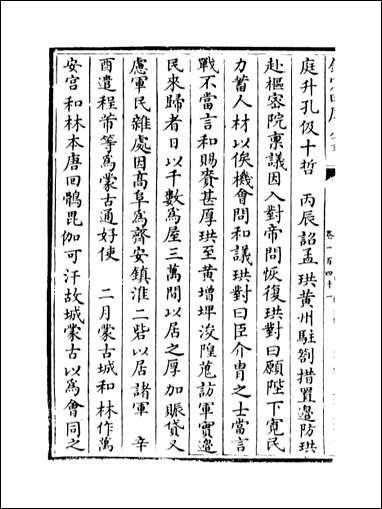 庭升孔伋十哲　丙辰詔孟珙黄州駐劄措置邉防珙
赴樞密院禀議因入對帝問恢復珙對曰願陛下寛民
力蓄人材以俟機會問和議珙對曰臣介胄之士當言
戰不當言和賜賚甚厚珙至黄增埤浚隍蒐訪軍實邉
民來歸者日以千數為屋三萬間以居之厚加賑貸又
慮軍民雜處因髙阜為齊安鎮淮二砦以居諸軍　辛
酉遣程芾等為蒙古通好使　二月蒙古城和林作萬
安宫和林本唐回鶻毘伽可汗故城蒙古以為會同之